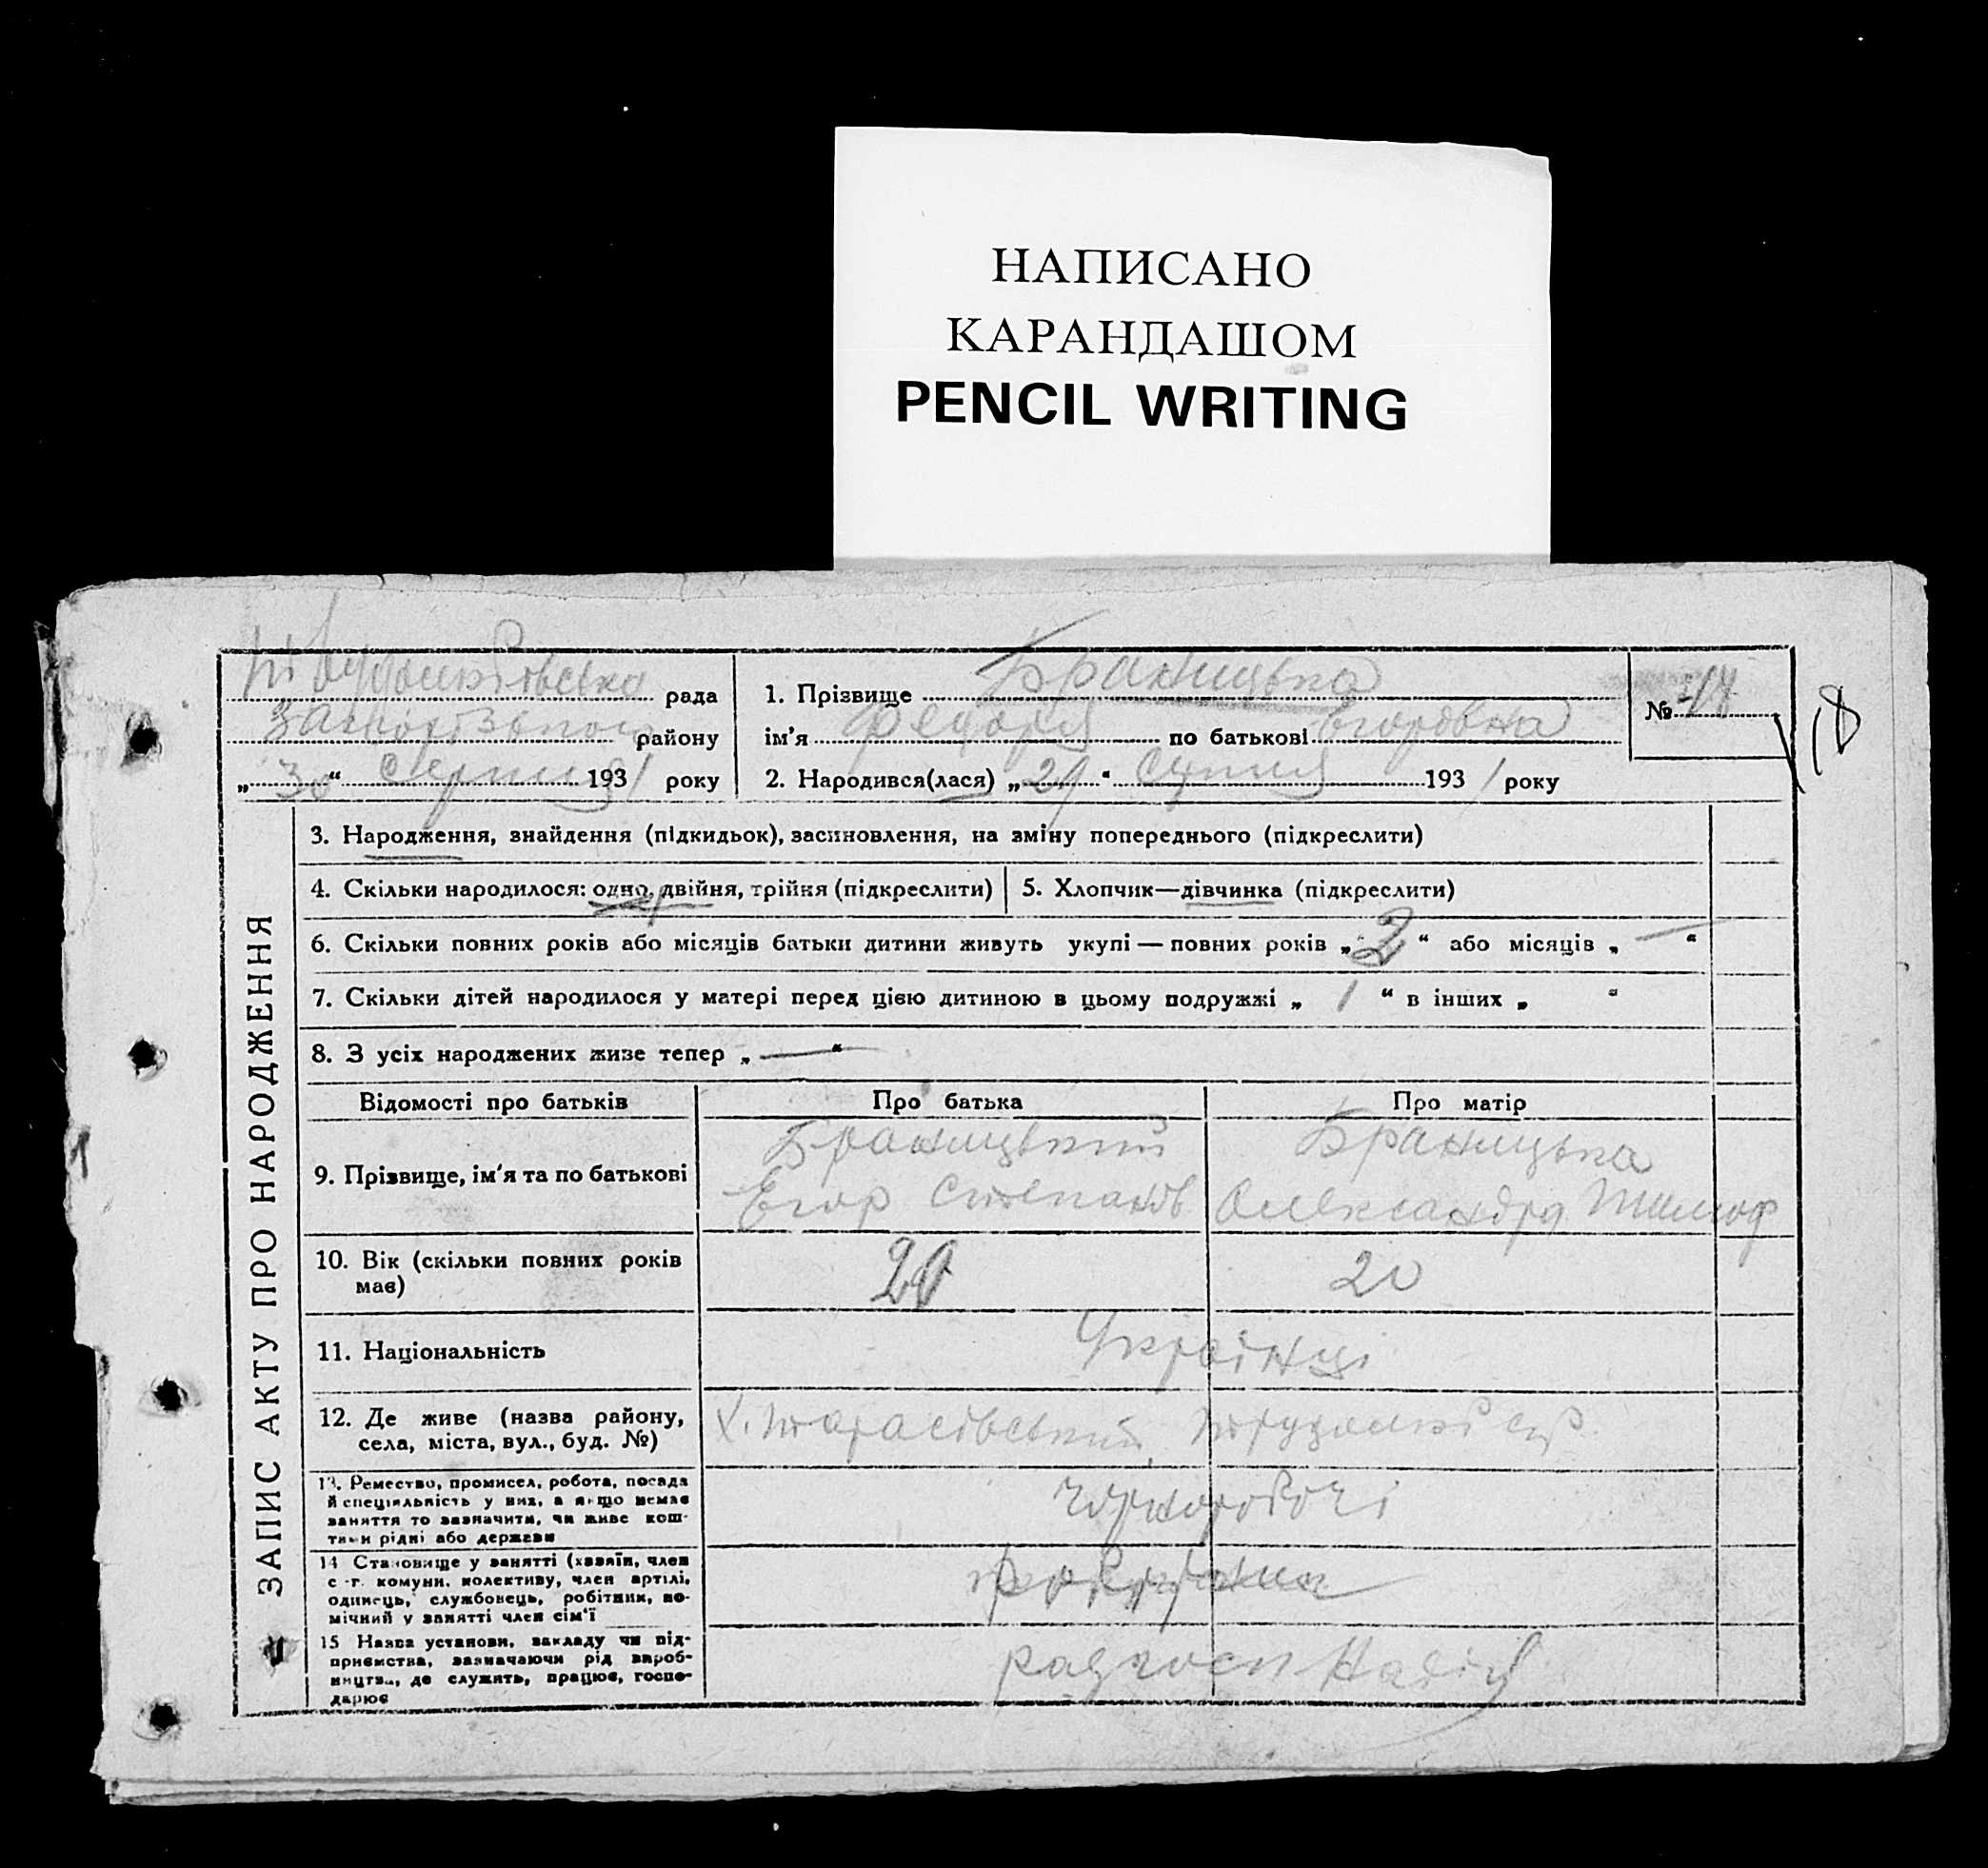 НАПИСАНО
КАРАНДАШОМ
PENCIL WRITING
рада
району
„30“ серпня 1931 року
1. Прізвище Браницька
ім'я по батькові Егоровна
2. Народився(лася) „29“ 1931 року
№ 18
18
ЗАПИС АКТУ ПРО НАРОДЖЕННЯ
3. Народження, знайдення (підкидьок), засиновлення, на зміну попереднього (підкреслити)
4. Скільки народилося: одно, двійня, трійня (підкреслити)
5. Хлопчик—дівчинка (підкреслити)
6. Скільки повних років або місяців батьки дитини живуть укупі — повних років „2“ або місяців „—“
7. Скільки дітей народилося у матері перед цією дитиною в цьому подружжі „1“ в інших „ “
8. З усіх народжених живе тепер „—“
Відомості про батьків
Про батька
Про матір
9. Прізвище, ім'я та по батькові
Браницький
Егор Степанов
Браницька
Олександра Тимоф
10. Вік (скільки повних років
має)
20
11. Національність
Українці
12. Де живе (назва району,
села, міста, вул., буд. №)
Х. Тарасівський
13. Ремество, промисел, робота, посада
й спеціяльність у них, а якщо немає
заняття то зазначити, чи живе кош-
тами рідні або держави
Чорноробочі
14 Становище у занятті (хазяїн, член
с.-г. комуни, колективу, член артілі,
одинець, службовець, робітник, по-
мічний у занятті член сім'ї
15 Назва установи, закладу чи під-
приємства, зазначаючи рід вироб-
ництва, де служить, працює, госпо-
дарює
радгосп